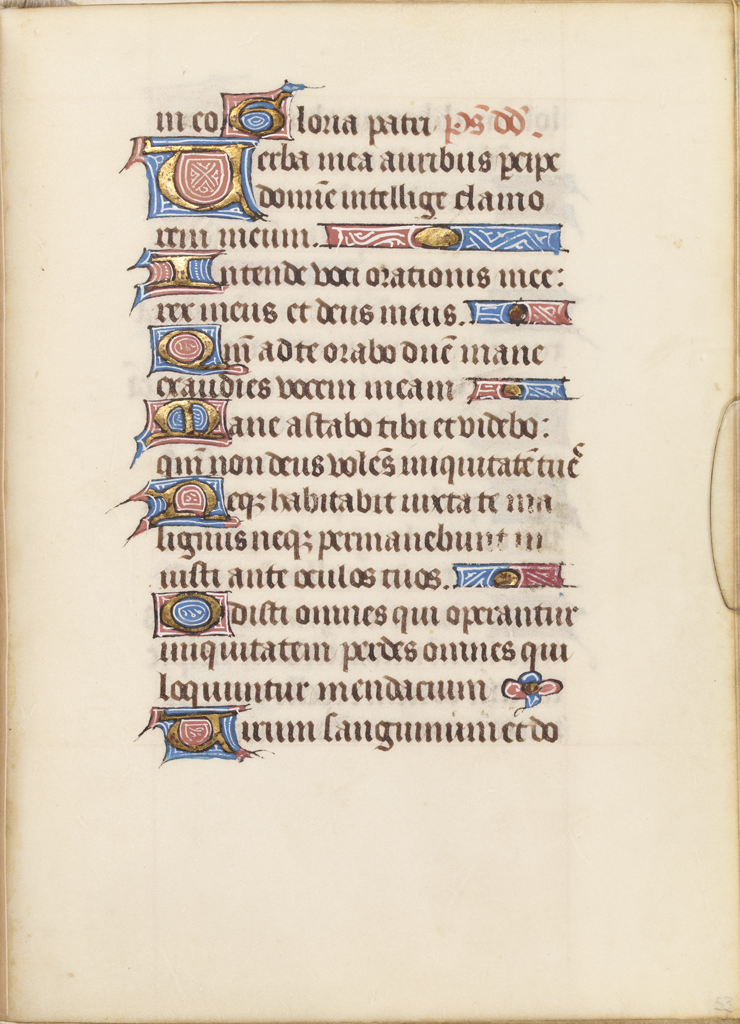 in eo Gloria patri ps dd̄.
Verba mea auribus ꝑcipe
domine intellige clamo
rem meum.
Intende voci orationis mee:
rex meus et deus meus.
Qm̄ ad te orabo dn̄e mane
exaudies vocem meam
Mane astabo tibi et videbo:
qm̄ non deus volēs iniquitatē tu ē
Neqꝫ habitabit iuxta te ma
lignus neqꝫ permanebunt in
iusti ante oculos tuos.
Odisti omnes qui operantur
iniquitatem perdes omnes qui
loquuntur mendacium
Virum sanguinum et do
53